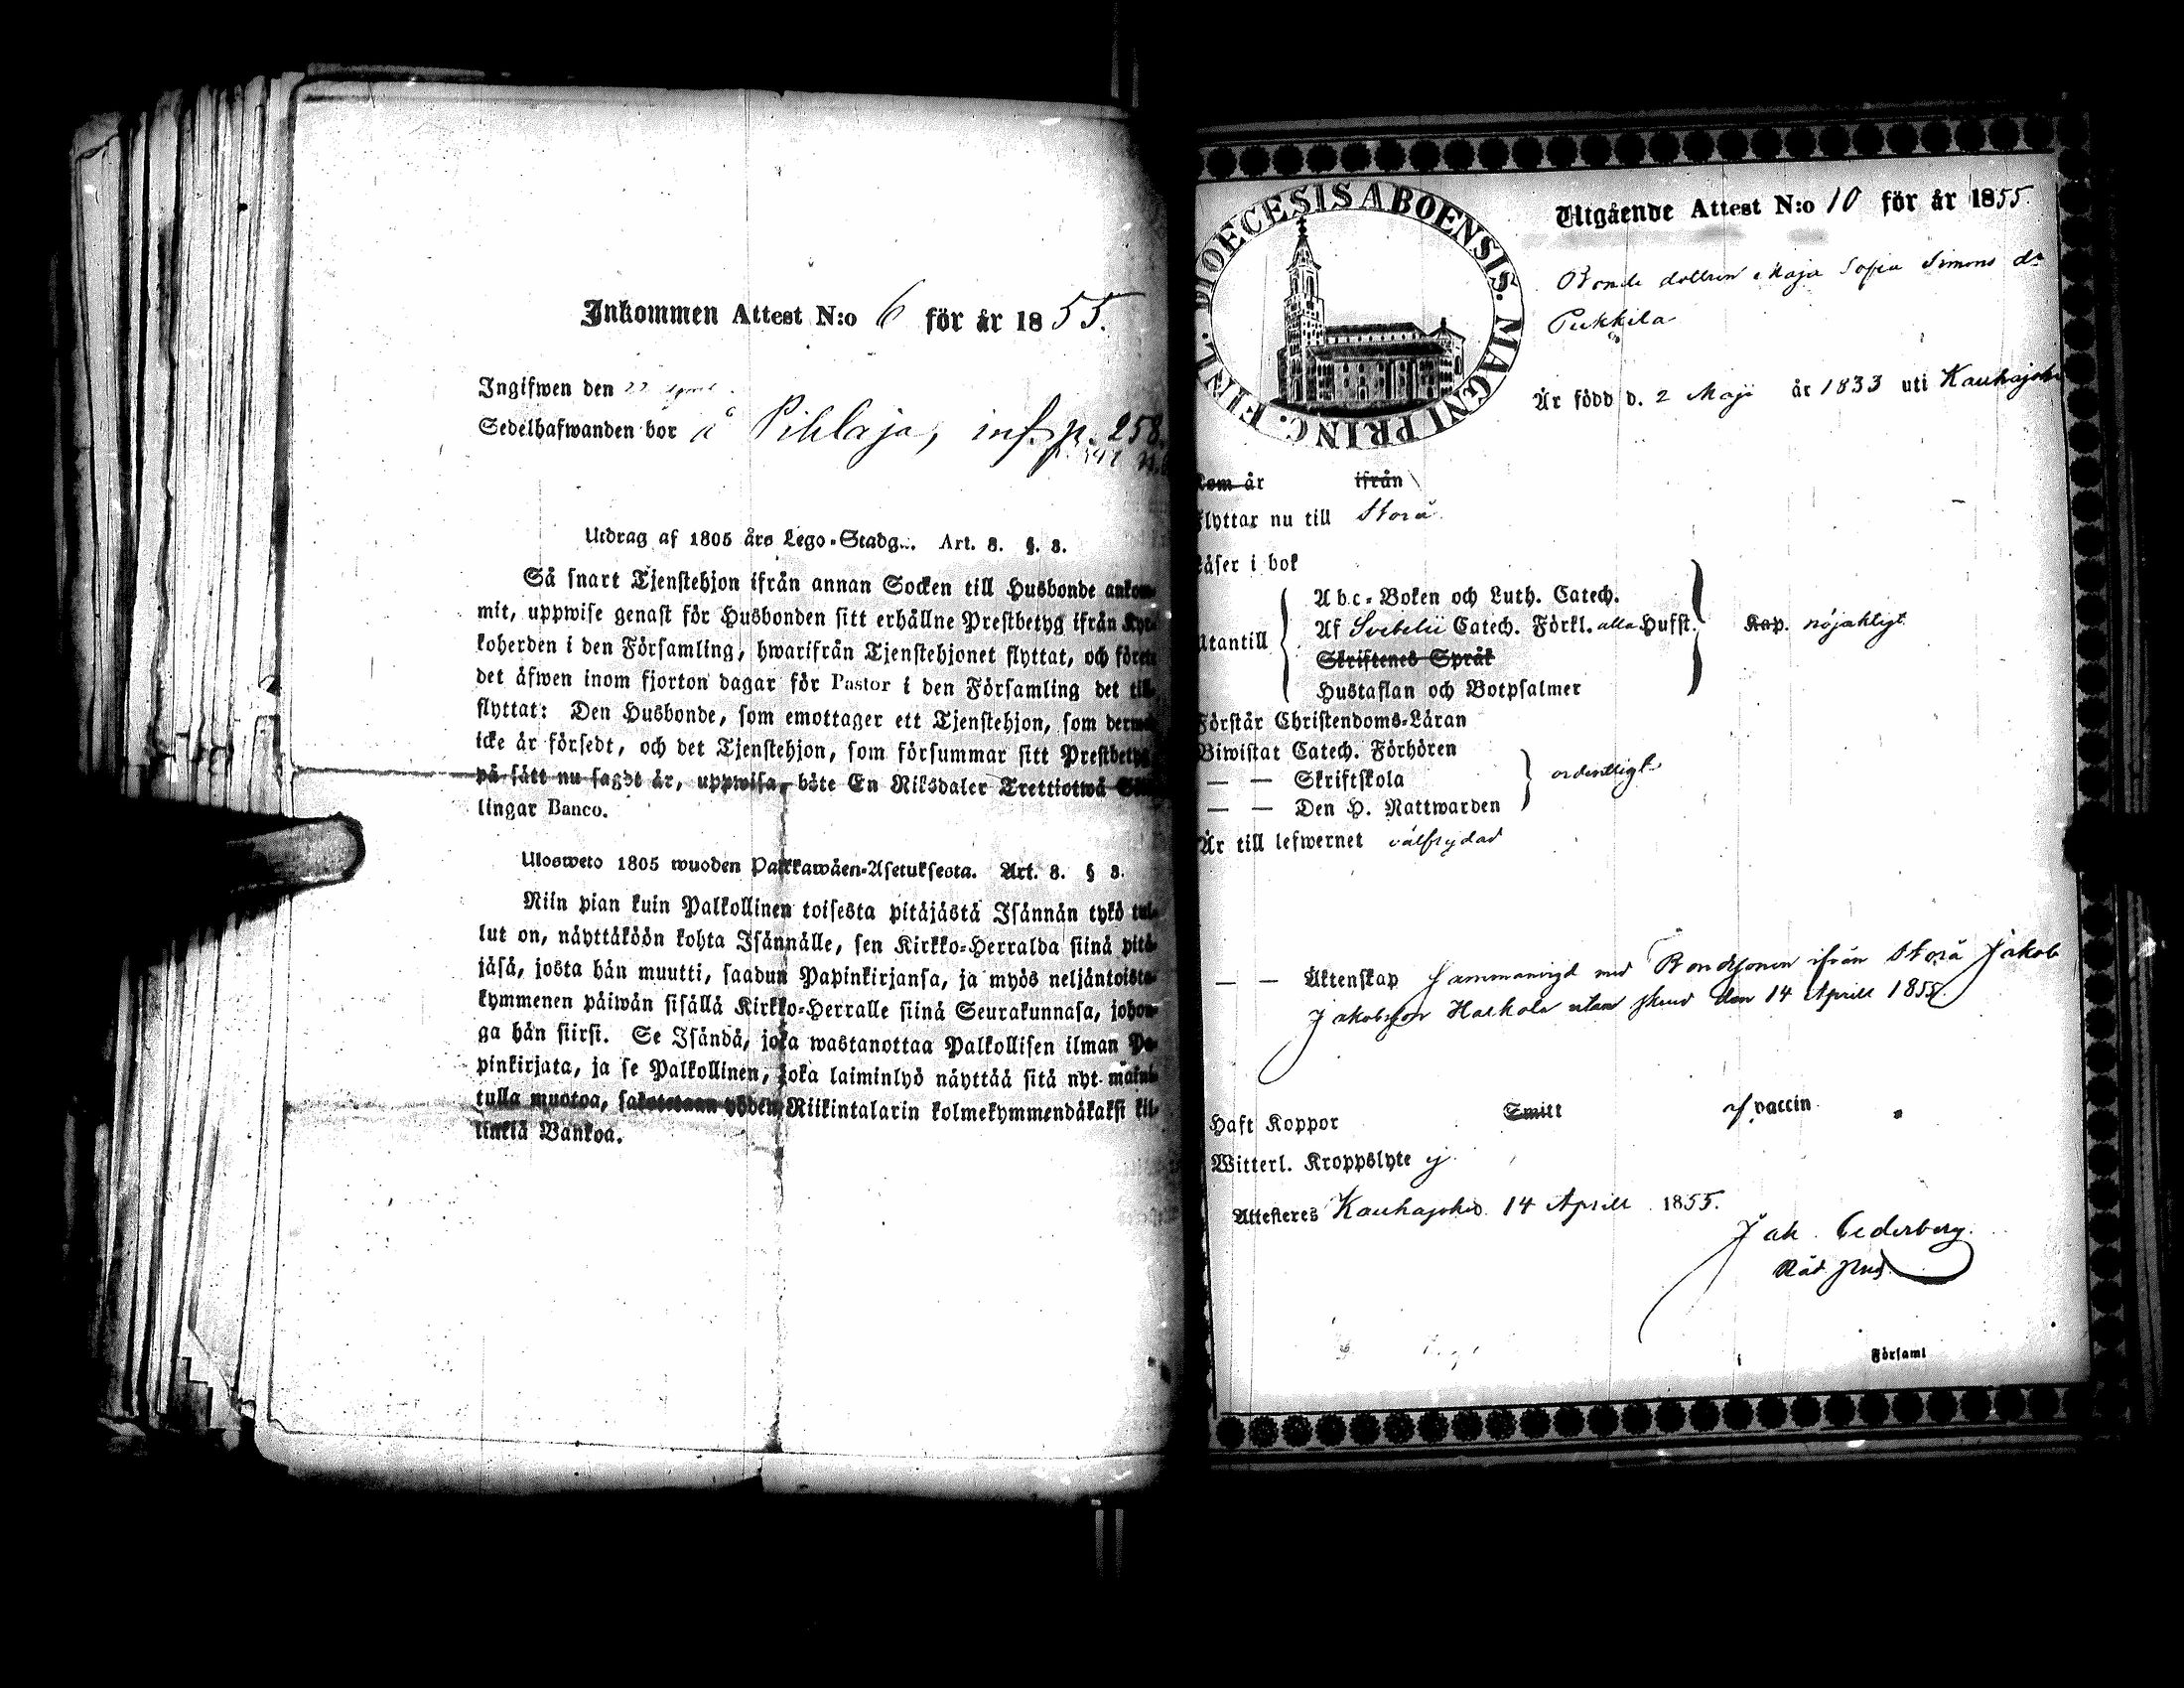 Inkommen Attest N:o 6 för år 1855.
Ingifwen den 22 April
Sedelhafwanden bor å Pihlaja, inf. p. 258.
Utdrag af 1805 års Lego-Stadg... Art. 8. §. 3.
Så snart Tjenstehjon ifrån annan Socken till Husbonde ankom-
mit, uppwise genast för Husbonden sitt erhållne Prestbetyg ifrån Kyr-
koherden i den Församling, hwarifrån Tjenstehjonet flyttat, och förete
det äfwen inom fjorton dagar för Pastor i den Församling det till-
flyttat: Den Husbonde, som emottager ett Tjenstehjon, som dermed
icke är försedt, och det Tjenstehjon, som försummar sitt Prestbetyg,
på sätt nu sagdt är, uppwisa, böte En Riksdaler Trettiotwå Skil-
lingar Banco.
Ulosweto 1805 wuoden Palkkawäen-Asetuksesta. Art. 8. § 3.
Niin pian kuin Palkollinen toisesta pitäjästä Isännän tykö tul-
lut on, näyttäköön kohta Isännälle, sen Kirkko-Herralda siinä pitä-
jäsä, josta hän muutti, saadun Papinkirjansa, ja myös neljäntoista-
kymmenen päiwän sisällä Kirkko-Herralle siinä Seurakunnasa, johon-
ga hän siirsi. Se Isändä, joka wastanottaa Palkollisen ilman Pa-
pinkirjata, ja se Palkollinen, joka laiminlyö näyttää sitä nyt mainit-
tulla muotoa, sakotetaan yhden Riikintalarin kolmekymmendäkaksi kil-
linkiä Bankoa.
DIOECESIS ABOENSIS. MAGNI PRINC. FINL.
Utgående Attest N:o 10 för år 1855
Bonde dottren Maja Sofia Simons dr
Pukkila
Är född d. 2 Maji år 1833 uti Kauhajoki
Kom år ifrån
Flyttar nu till Storå
Läser i bok
Utantill
Abc-Boken och Luth. Catech.
Af Svebelii Catech. Förkl. alla Hufst.
Skriftenes Språk
Hustaflan och Botpsalmer
Kap. nöjaktigt
Förstår Christendoms-Läran
Biwistat Catech. Förhören
— — Skriftskola
— — Den H. Nattwarden
ordentligt
Är till lefwernet välfrejdad
— — Äktenskap sammanvigd med Bondesonen ifrån Storå Jakob
Jakobsson Harkola utan den 14 Aprill 1855.
Haft Koppor Smitt af vaccin
Witterl. Kroppslyte ej
Attesteres Kauhajoki 14 Aprill 1855.
Jak. Cederberg.
i Församl